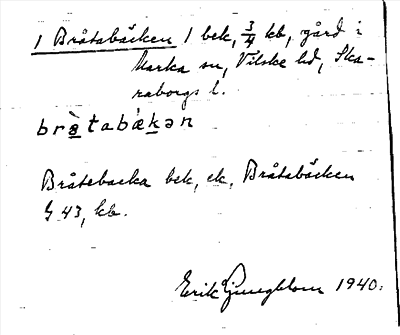 1 Bråtabäcken 1 bek, 3/4 kb, gård i
Marka sn, Vilske hd, Ska-
raborgs l.
bråtabäkən
Bråtebacka bek, ek. Bråtabäcken
G 43, kb.
Erik Ljungblom 1940.